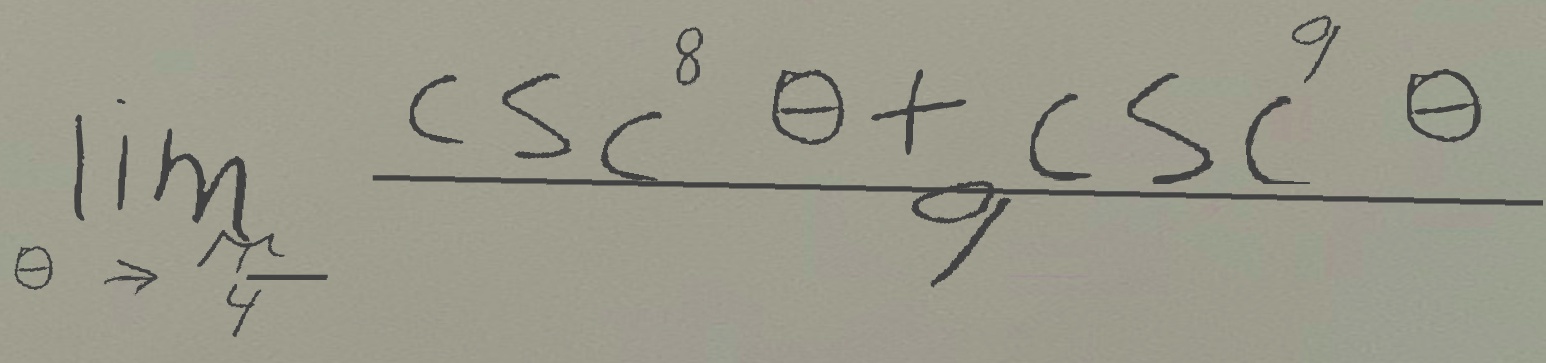 \lim_{\theta \to \frac{\pi}{4}} \frac{\csc^8 \theta + \csc^9 \theta}{9}